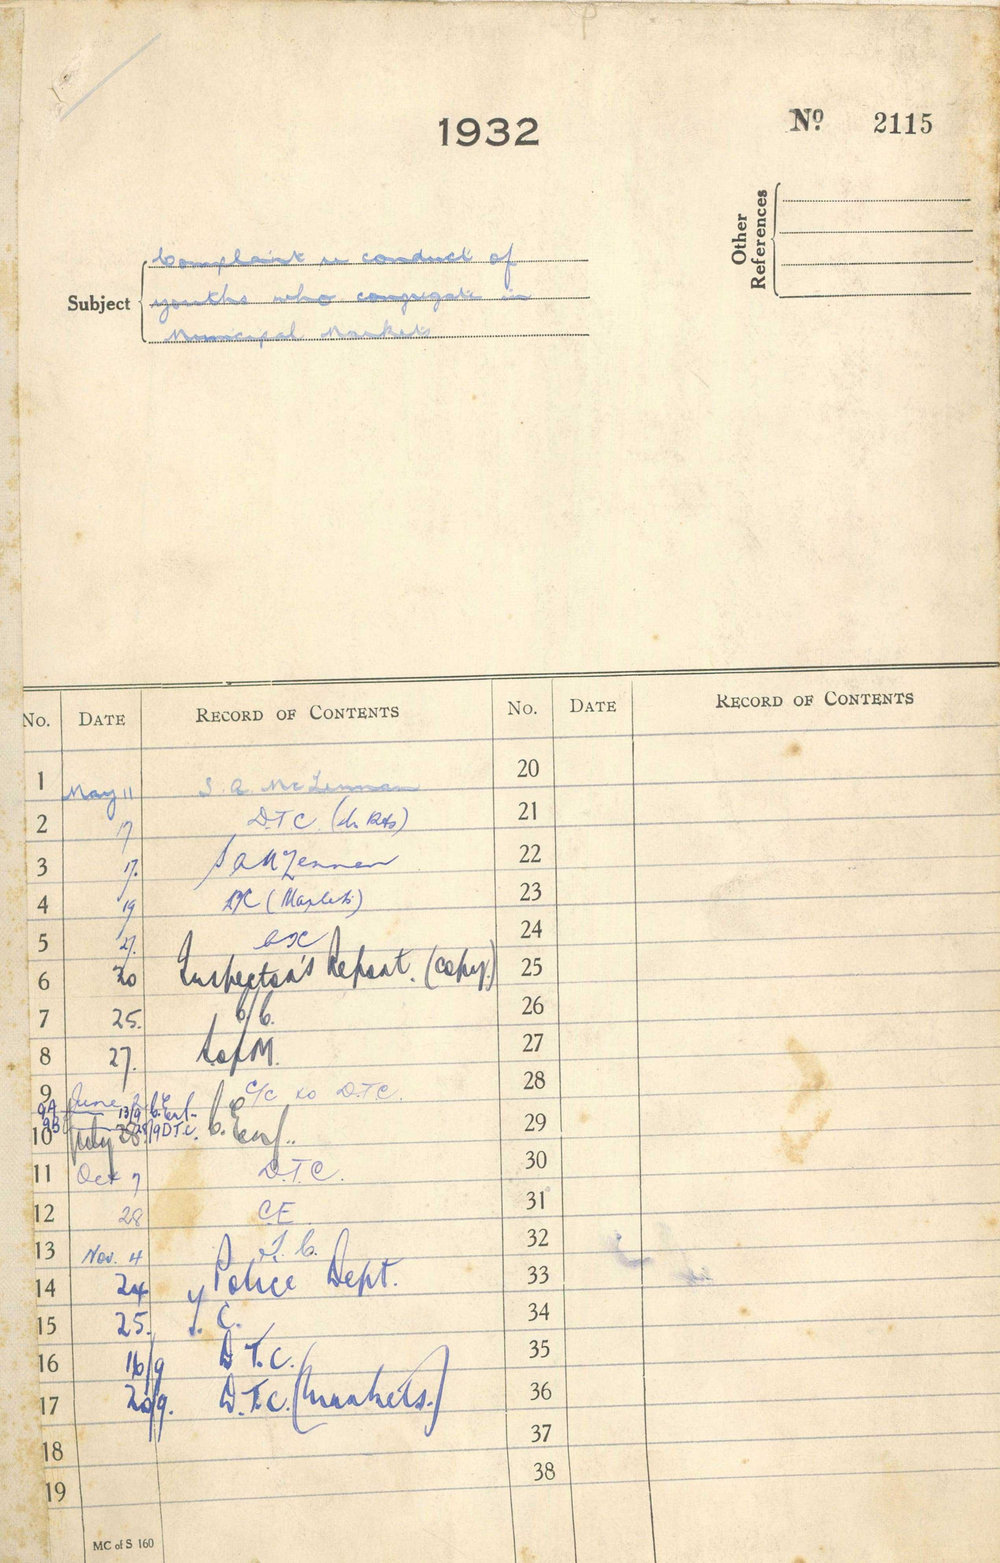 1932
Nº 2115
Other References
Subject
Complaint re conduct of
youths who congregate in
Municipal Markets
No. DATE RECORD OF CONTENTS
1 May 11 S. A. McLennan
2 17 D.T.C.
3 17. S A McLennan
4 19 (Markets)
5 27.
6 20 Inspector's Report. (copy.)
7 25.
8 27.
9 June C/c to D.T.C.
9A 13/9 C. Eng.
9B 28/9 D.T.C.
10 July 28. C. Eng.
11 Oct 7 D.T.C.
12 28 C.E
13 Nov. 4 T. C.
14 24 Police Dept.
15 25. C.
16 16/9 D.T.C.
17 20/9. D.T.C. (Markets.)
18
19
No. DATE RECORD OF CONTENTS
20
21
22
23
24
25
26
27
28
29
30
31
32
33
34
35
36
37
38
MC of S 160